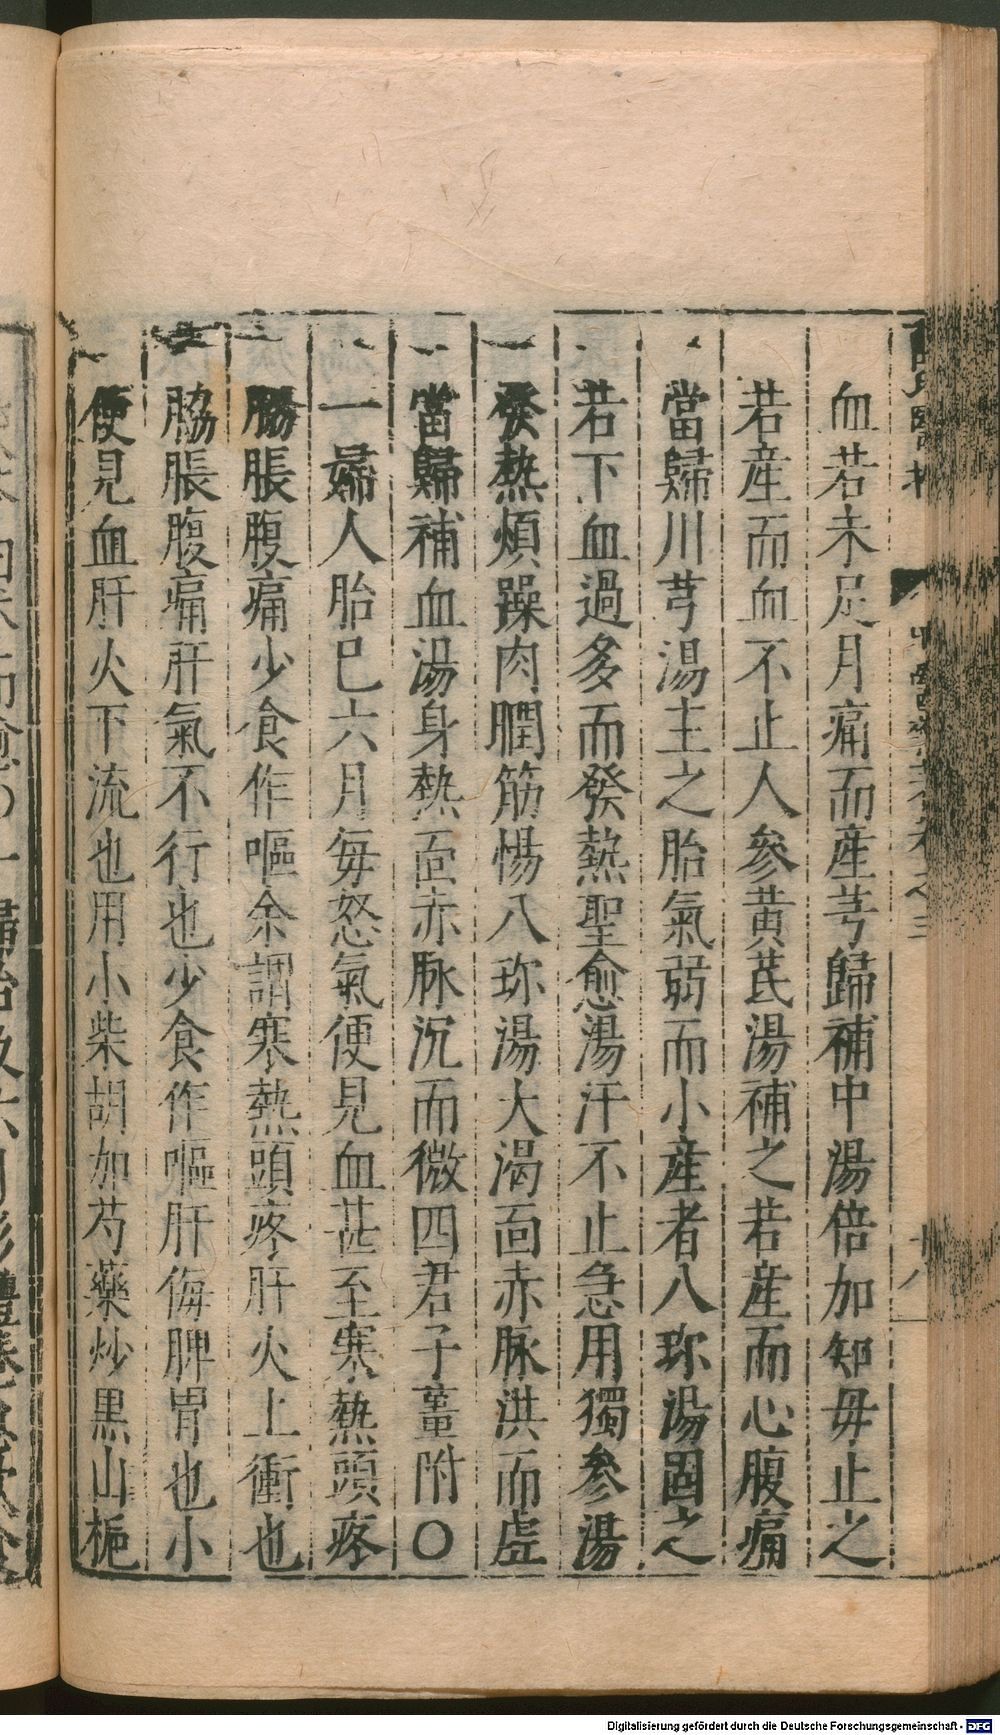 血若未足月痛而産芎歸補中湯倍加知毋止之
若産而血不止人參黃茋湯補之若産而心腹痛
當歸川芎湯主之胎氣弱而小産者八珍湯固之
若下血過多而發熱聖愈湯汗不止急用獨參湯
發熱煩躁肉瞤筋惕八珍湯大渴面赤脉洪而虛
當歸補血湯身熱面赤脉沉而微四君子薑附〇
一婦人胎巳六月每怒氣便見血甚至寒熱頭疼
脇脹腹痛少食作嘔余謂寒熱頭疼肝火上衝也
脇脹腹痛肝氣不行也少食作嘔肝侮脾胃也小
便見血肝火下流也用小柴胡加芍藥炒黑山梔
Digitalisierung gefördert durch die Deutsche Forschungsgemeinschaft - DFG